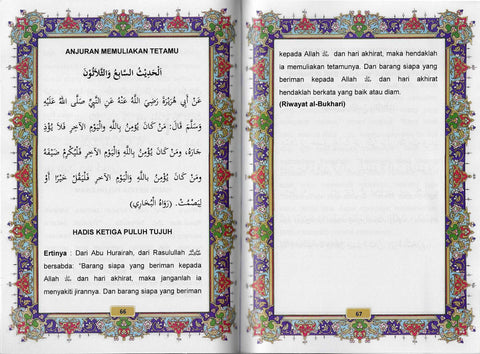 ANJURAN MEMULIAKAN TETAMU
اَلْحَدِيْثُ السَّابِعُ وَالثَّلَاثُوْنَ
عَنْ أَبِي هُرَيْرَةَ رَضِيَ اللهُ عَنْهُ عَنِ النَّبِيِّ صَلَّى اللهُ عَلَيْهِ
وَسَلَّمَ قَالَ: مَنْ كَانَ يُؤْمِنُ بِاللَّهِ وَالْيَوْمِ الآخِرِ فَلاَ يُؤْذِ
جَارَهُ، وَمَنْ كَانَ يُؤْمِنُ بِاللَّهِ وَالْيَوْمِ الآخِرِ فَلْيُكْرِمْ ضَيْفَهُ
وَمَنْ كَانَ يُؤْمِنُ بِاللَّهِ وَالْيَوْمِ الآخِرِ فَلْيَقُلْ خَيْرًا أَوْ
لِيَصْمُتْ. (رَوَاهُ الْبُخَارِي)
HADIS KETIGA PULUH TUJUH
Ertinya : Dari Abu Hurairah, dari Rasulullah ﷺ
bersabda: "Barang siapa yang beriman kepada
Allah ﷻ dan hari akhirat, maka janganlah ia
menyakiti jirannya. Dan barang siapa yang beriman
66
kepada Allah ﷻ dan hari akhirat, maka hendaklah
ia memuliakan tetamunya. Dan barang siapa yang
beriman kepada Allah ﷻ dan hari akhirat
hendaklah berkata yang baik atau diam.
(Riwayat al-Bukhari)
67